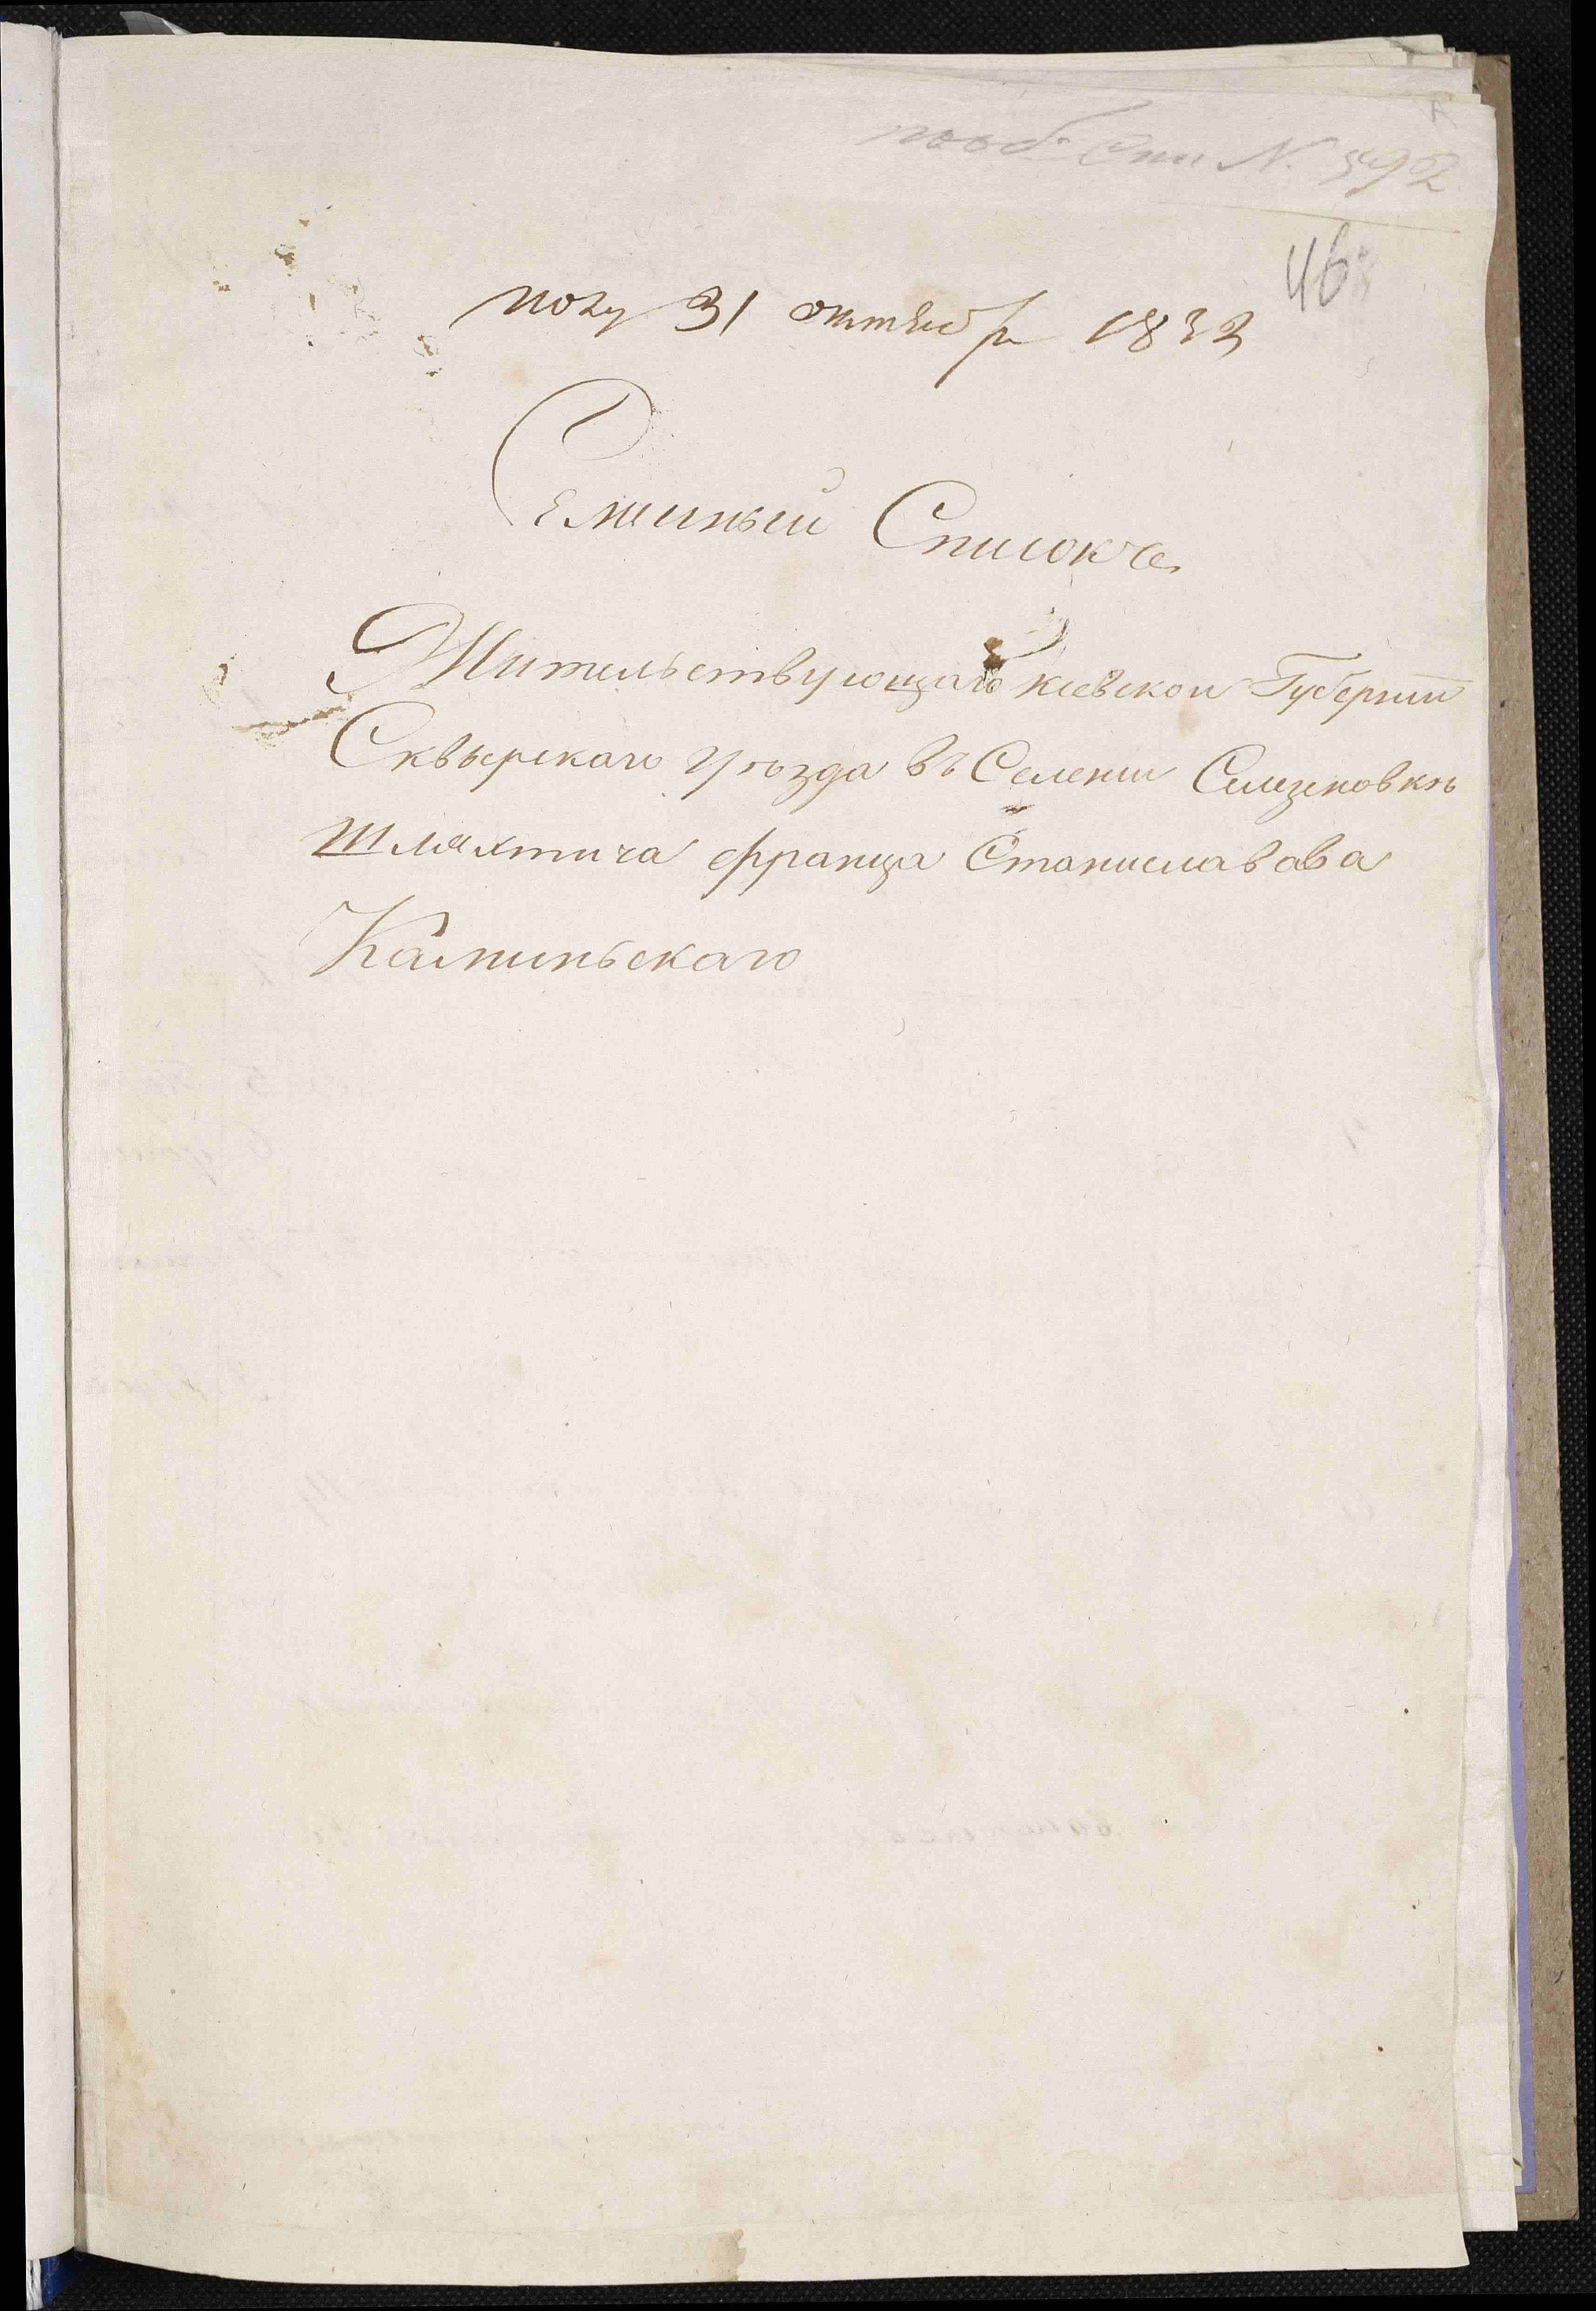 N. 592
46
полу 31 октября 1832
Семиный Списокъ
Жительствующаго Киевской Губернии
Сквырскаго Уъзда въ Селении Селезеновкъ
Шляхтича Франца Станиславава
Калиньскаго